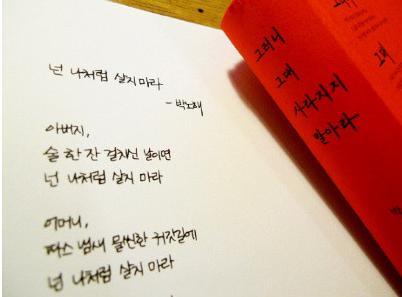 넌 나처럼 살지마라
- 박노해
아버지,
술 한 잔 걸치신 날이면
넌 나처럼 살지 마라
어머니,
파스 냄새 물씬한 귀갓길에
넌 나처럼 살지 마라
그러니
그대
사라지지
말아라